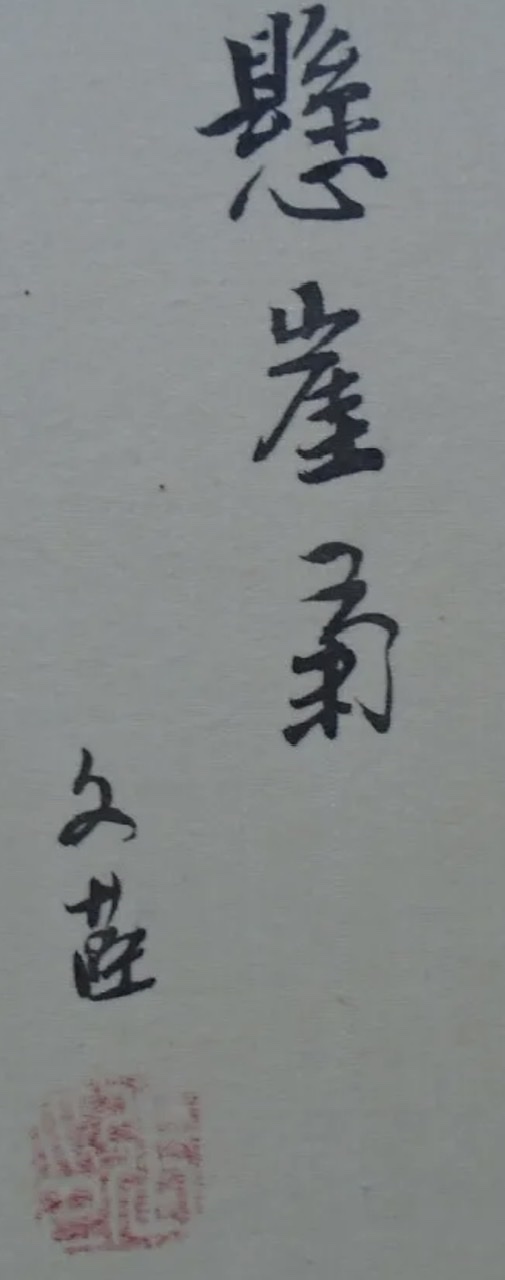 懸崖菊
文